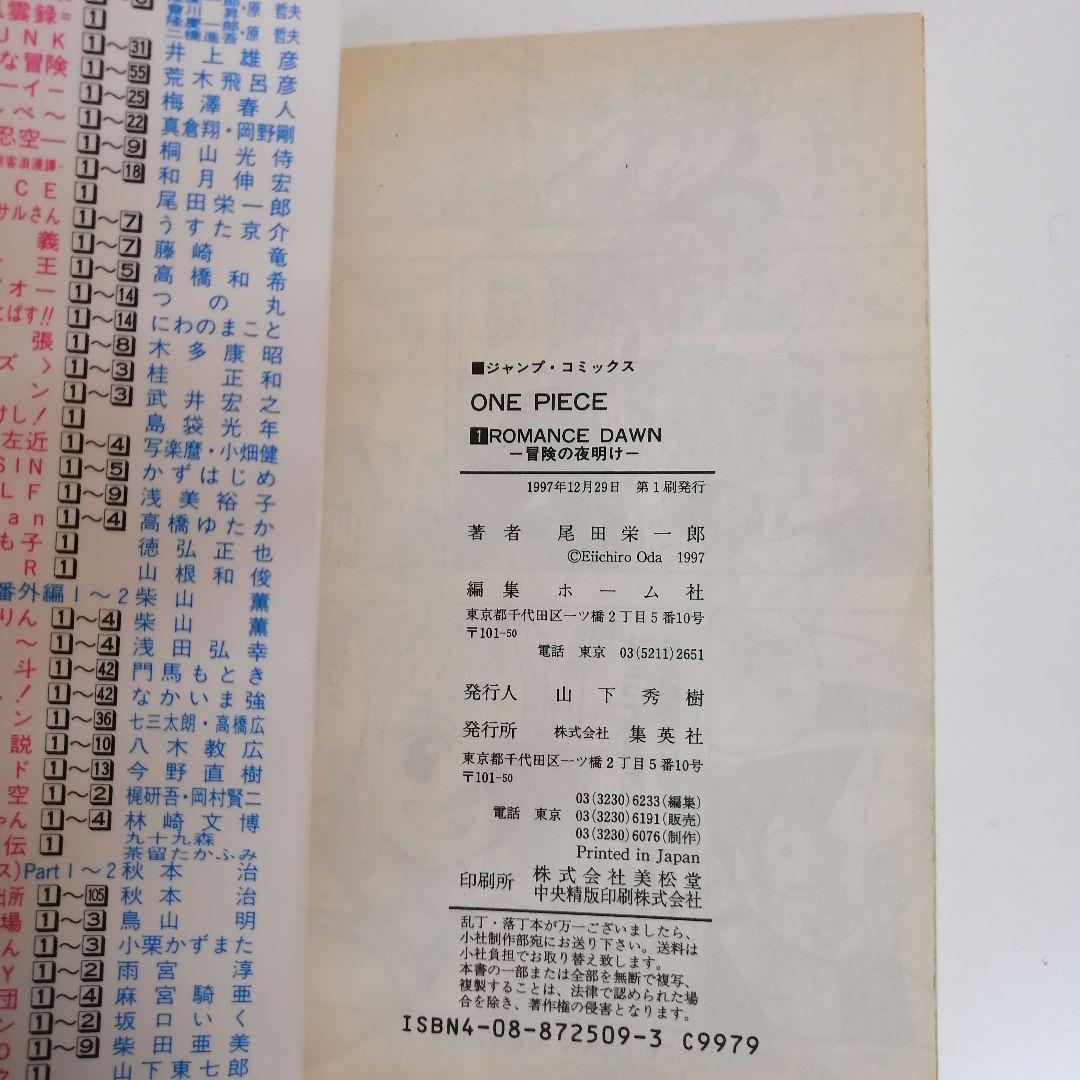 雲録=
UNK 1～31 井上雄彦
な冒険 1～55 荒木飛呂彦
ーイー 1～25 梅澤春人
べ～ 1～22 真倉翔・岡野剛
忍空― 1～9 桐山光侍
剣客浪漫譚- 1～18 和月伸宏
CE 1 尾田栄一郎
サルさん 1～7 うすた京介
義 1～7 藤崎竜
王 1～5 高橋和希
オー 1～14 つの丸
とばす!! 1～14 にわのまこと
張 1～8 木多康昭
ズ〉 1～3 桂正和
ン 1～3 武井宏之
けし! 1 島袋光年
左近 1～4 写楽麿・小畑健
SIN 1～5 かずはじめ
LF 1～9 浅美裕子
an 1～4 高橋ゆたか
も子 1 徳弘正也
R 1 山根和俊
番外編1～2 柴山薫
りん 1～4 柴山薫
～ 1～4 浅田弘幸
斗 1～42 門馬もとき
! 1～42 なかいま強
ン 1～36 七三太朗・高橋広
説 1～10 八木教広
ド 1～13 今野直樹
空 1～2 梶研吾・岡村賢二
ゃん 1～4 林崎文博
伝 1 九十九森
茶留たかふみ
ス)Part1～2 秋本治
出所 1～105 秋本治
場 1～3 鳥山明
ん 1～3 小栗かずまた
Y 1～2 雨宮淳
団 1～4 麻宮騎亜
ン 1～2 坂口いく
O 1～9 柴田亜美
1 山下東七郎
■ジャンプ・コミックス
ONE PIECE
1 ROMANCE DAWN
―冒険の夜明け―
1997年12月29日 第1刷発行
著者 尾田栄一郎
©Eiichiro Oda 1997
編集 ホーム社
東京都千代田区一ツ橋2丁目5番10号
〒101-50
電話 東京 03(5211)2651
発行人 山下秀樹
発行所 株式会社 集英社
東京都千代田区一ツ橋2丁目5番10号
〒101-50
03(3230)6233(編集)
電話 東京 03(3230)6191(販売)
03(3230)6076(制作)
Printed in Japan
印刷所 株式会社美松堂
中央精版印刷株式会社
乱丁・落丁本が万一ございましたら、
小社制作部宛にお送り下さい。送料は
小社負担でお取り替え致します。
本書の一部または全部を無断で複写、
複製することは、法律で認められた場
合を除き、著作権の侵害となります。
ISBN4-08-872509-3 C9979